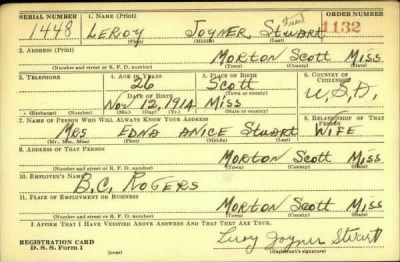 SERIAL NUMBER 1. NAME (Print) ORDER NUMBER
1448 LEROY JOYNER STUART 1132
(First) (Middle) (Last)
2. ADDRESS (Print)
MORTON SCOTT MISS
(Number and street or R. F. D. number) (Town) (County) (State)
3. TELEPHONE 4. AGE IN YEARS 5. PLACE OF BIRTH 6. COUNTRY OF CITIZENSHIP
26 SCOTT
(Town or county)
DATE OF BIRTH
NOV 12, 1914 MISS U.S.A.
(Exchange) (Number) (Mo.) (Day) (Yr.) (State or country)
7. NAME OF PERSON WHO WILL ALWAYS KNOW YOUR ADDRESS 8. RELATIONSHIP OF THAT PERSON
MRS EDNA ANICE STUART WIFE
(Mr., Mrs., Miss) (First) (Middle) (Last)
9. ADDRESS OF THAT PERSON
MORTON SCOTT MISS
(Number and street or R. F. D. number) (Town) (County) (State)
10. EMPLOYER'S NAME
B.C. ROGERS
11. PLACE OF EMPLOYMENT OR BUSINESS
MORTON SCOTT MISS
(Number and street or R. F. D. number) (Town) (County) (State)
I AFFIRM THAT I HAVE VERIFIED ABOVE ANSWERS AND THAT THEY ARE TRUE.
REGISTRATION CARD
D. S. S. Form 1
(over)
Leroy Joyner Stuart
(Registrant's signature)